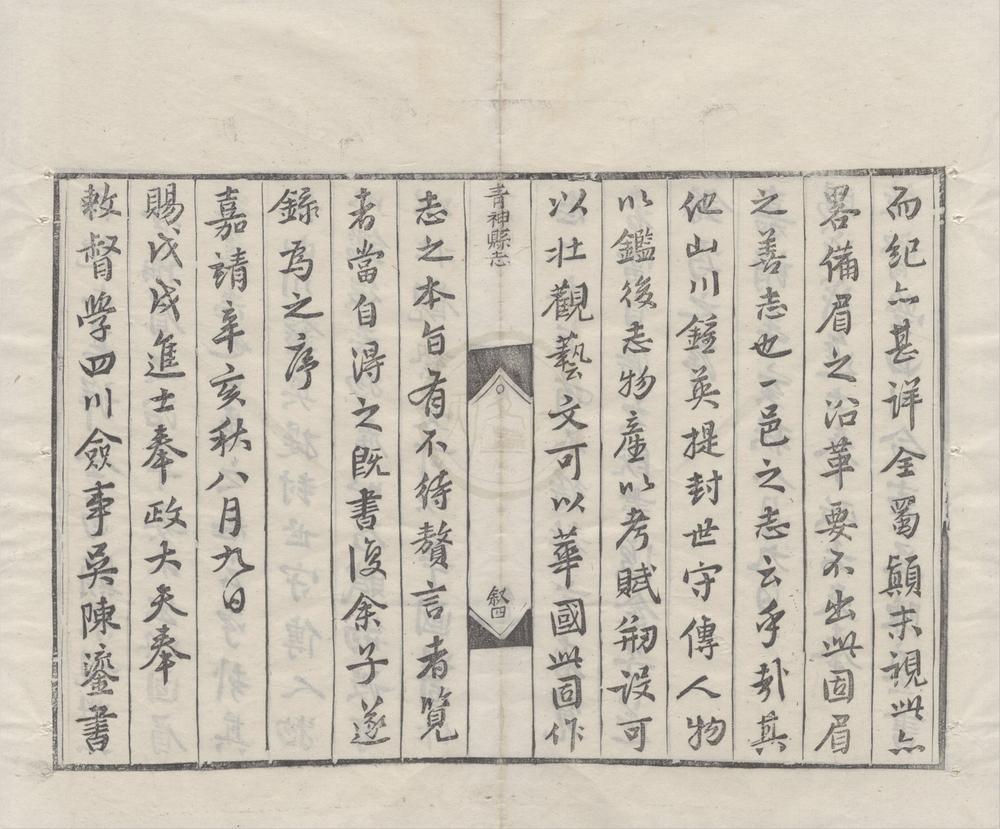 而纪亦甚详全蜀顛末視此亦
畧備眉之沿革要不出此固眉
之善志也一邑之志云乎㢤其
他山川鍾英提封世守傳人物
以鑑後志物產以考賦刱設可
以壯觀藝文可以華國此固作
青神縣志
叙四
志之本旨有不待贅言者覽
者當自得之既書復余子遂
錄焉之序
嘉靖辛亥秋八月九日
賜戊戌進士奉政大夫奉
敕督學四川僉事吳陳鎏書